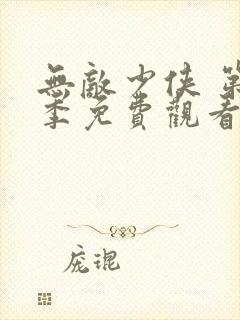 無敵少俠 第
季免費觀看
庞琨